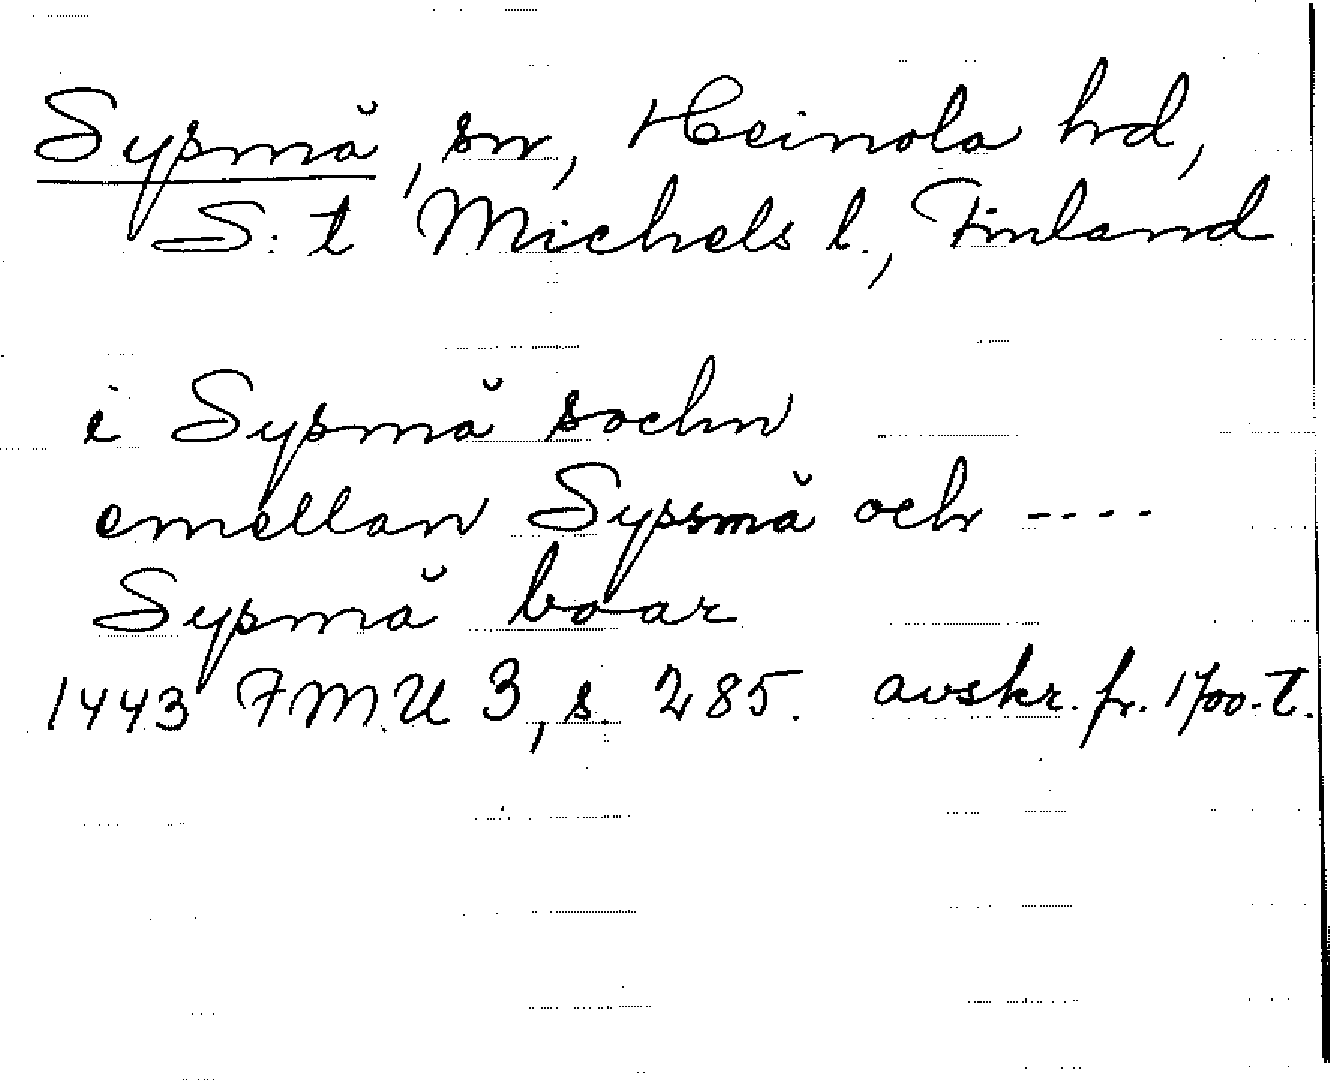 Sysmä, sn, Heinola hd,
S:t Michels l., Finland
i Sysmä sochn
emellan Sysmä och ----
Sysmä boar
1443 FMU 3, s. 285. avskr. fr. 1700-t.